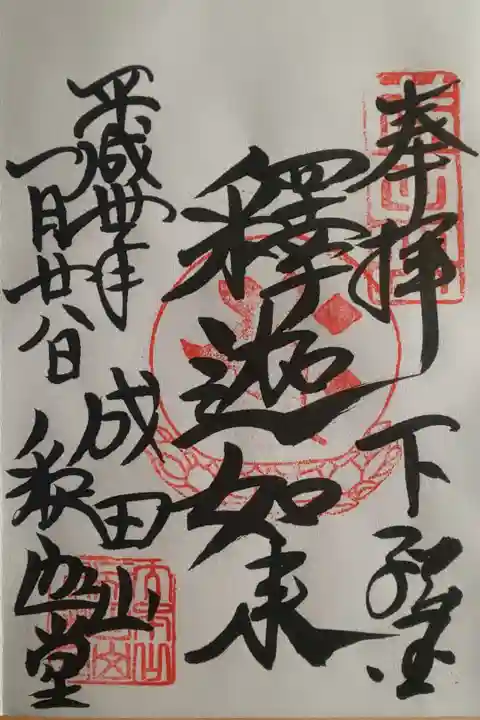 奉拝 下
釋迦如来
成田山
釈迦堂
平成卅年
一月廿八日